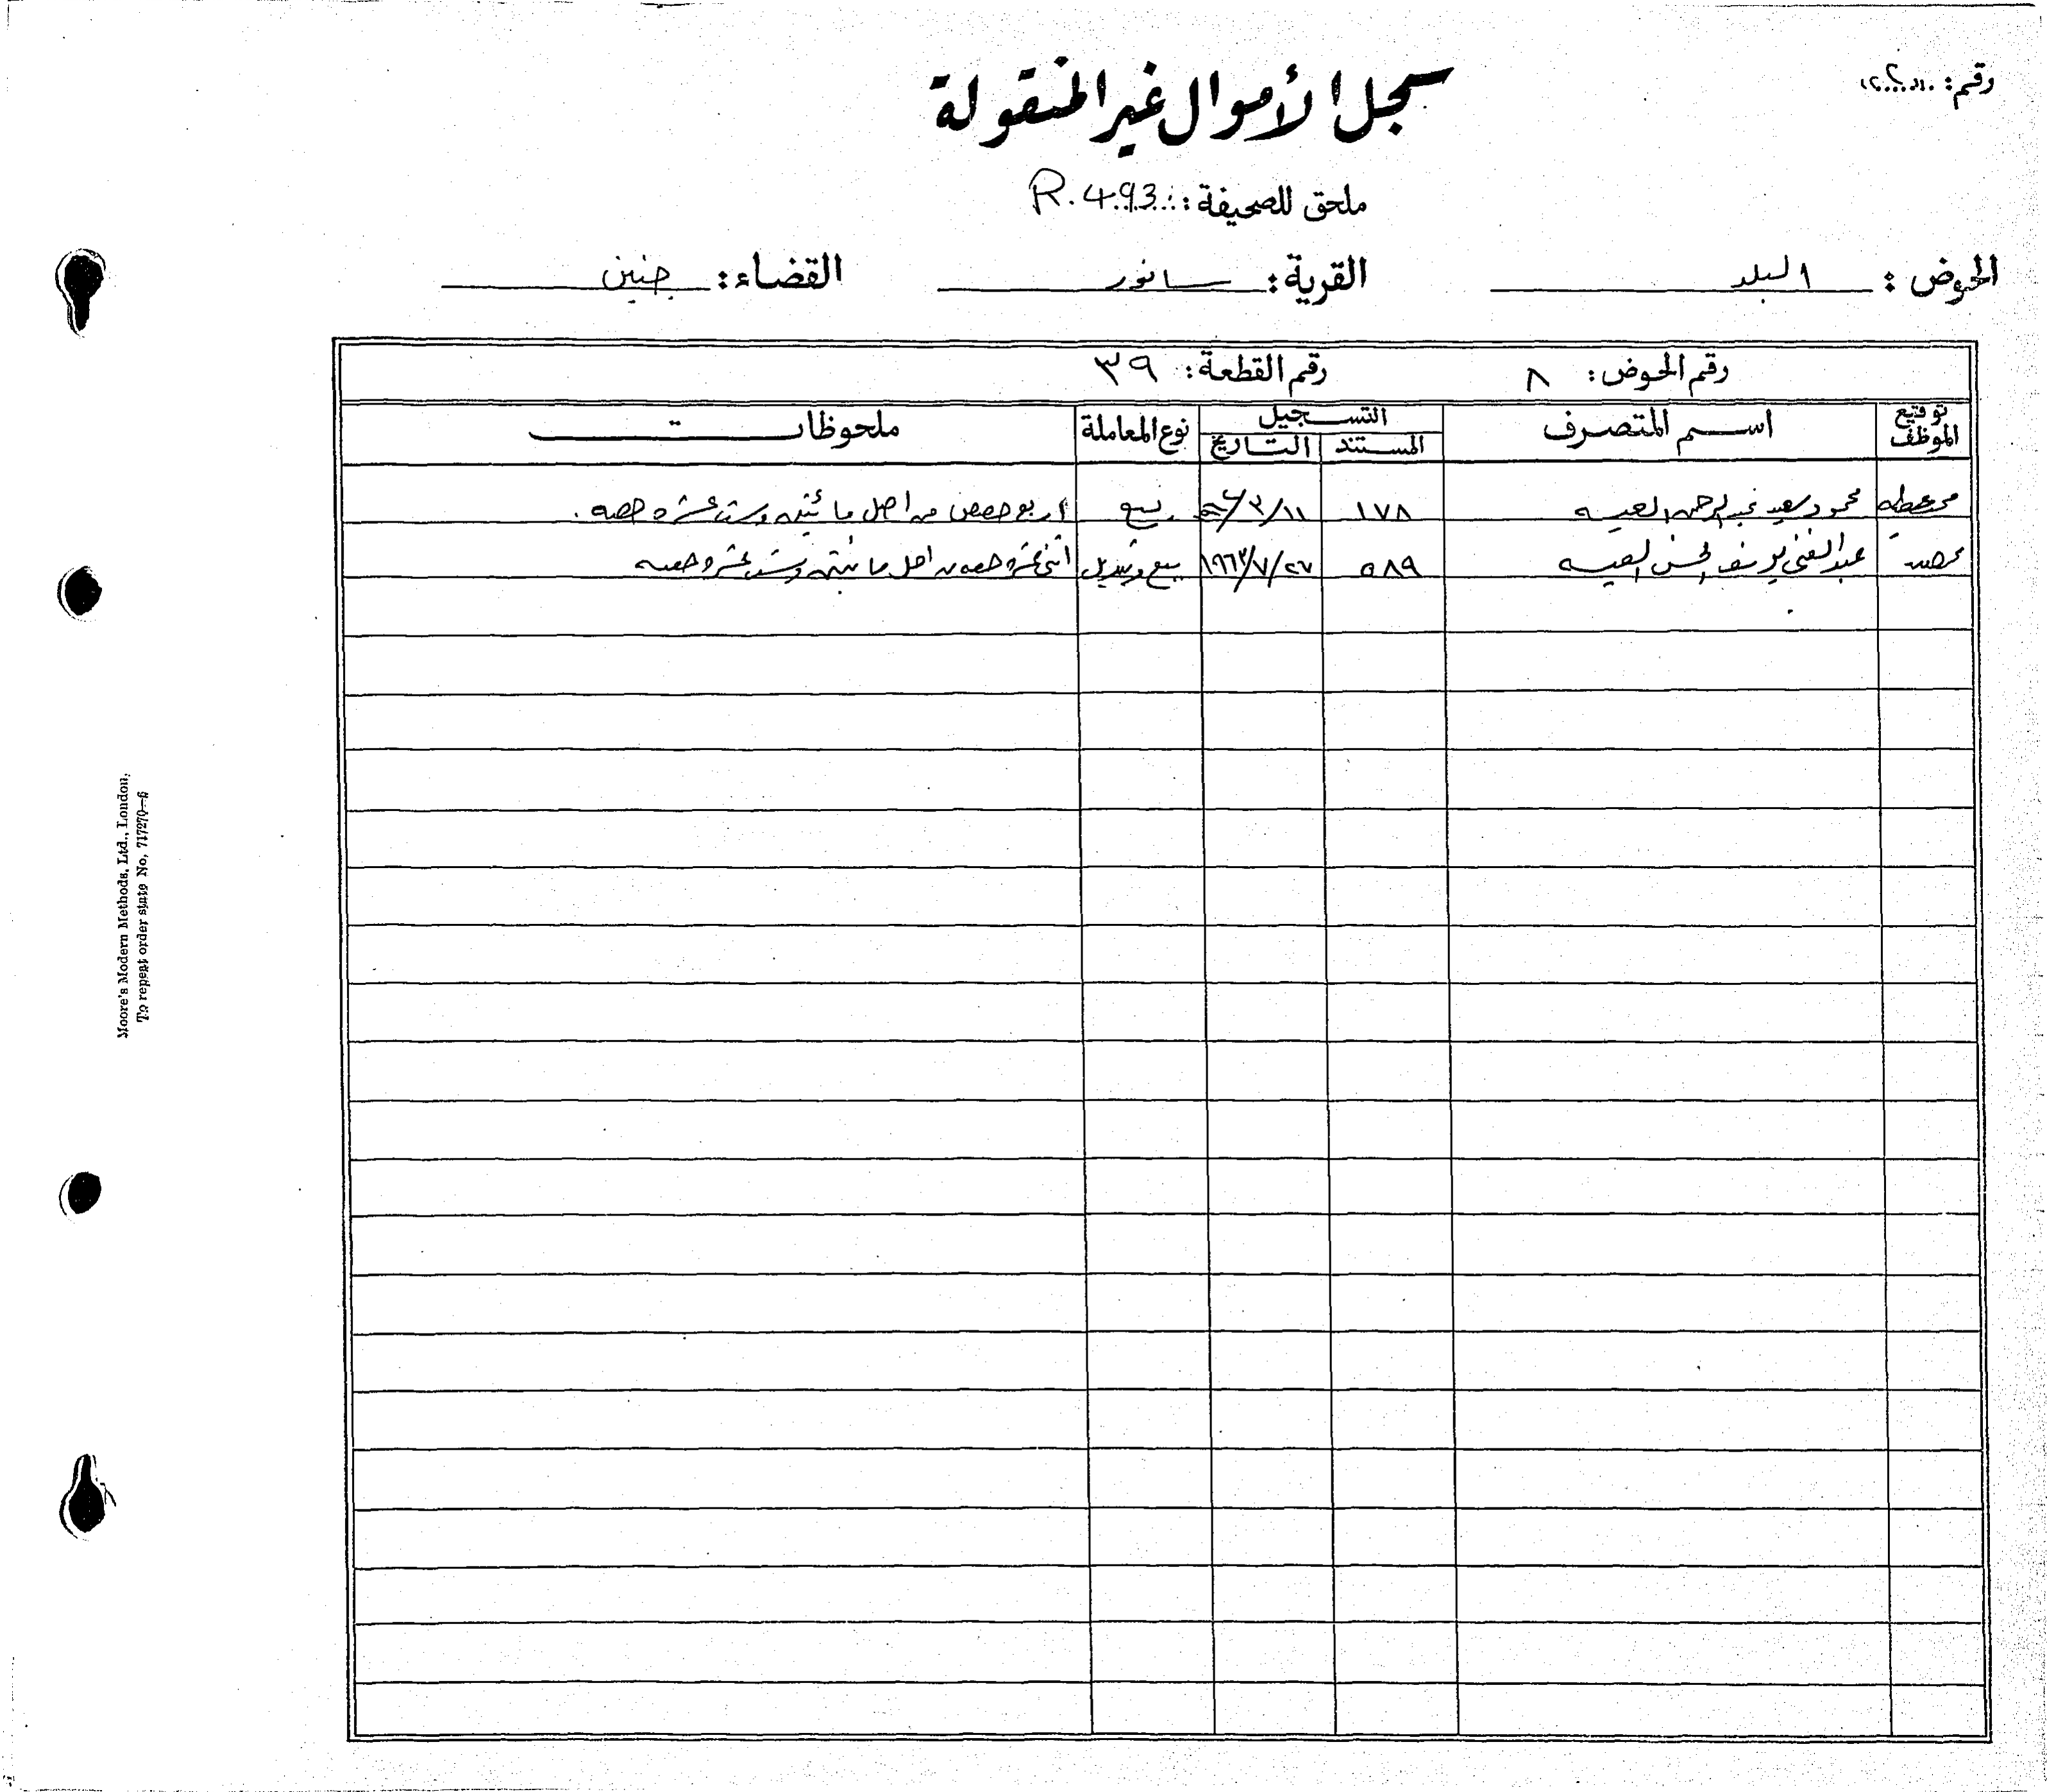 رقم:
سجل الأموال غير المنقولة
ملحق للصحيفة: R. 493
الحوض: البلد القرية: سانور القضاء: جنين
رقم الحوض: ٨ رقم القطعة: ٣٩
توقيع الموظف اسم المتصرف التسجيل نوع المعاملة ملحوظات
المستند التاريخ
محمود سعيد عبد الرحمن العيسه ١٧٨ بيع اربع حصص من اصل مائتين وست عشرة حصه.
عبد الغني يوسف الحسن العيسه ٥٨٩ ١٩٦٣/٧/٢٧ بيع وتبديل اثني عشرة حصه من اصل مائتين وست عشرة حصه
Moore's Modern Methods, Ltd., London,
To repeat order state No. 717270-6